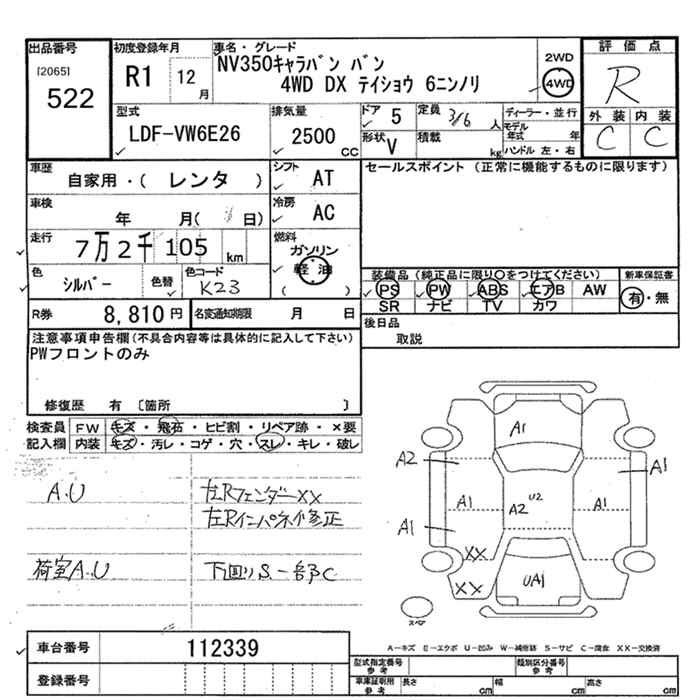 出品番号
[2065]
522
初度登録年月
R1 12月
車名・グレード
NV350キャラバン バン
4WD DX テイショウ 6ニンノリ
2WD
4WD
評価点
R
外装 内装
C C
型式
LDF-VW6E26
排気量
2500 CC
ドア 5
定員 3/6 人
形状 V
積載 kg
ディーラー・並行
モデル年式 年
ハンドル 左・右
車歴
自家用・( レンタ )
シフト
AT
車検
年 月( 日)
冷房
AC
走行
7万2千105 km
燃料
ガソリン
軽油
( )
色
シルバー
色替
色コード
K23
R券 8,810円
名変通知期限 月 日
セールスポイント (正常に機能するものに限ります)
装備品 (純正品に限り○をつけてください)
新車保証書
PS PW ABS エアB AW
SR ナビ TV カワ
有・無
後日品
取説
注意事項申告欄(不具合内容等は具体的に記入して下さい)
PWフロントのみ
修復歴 有 〔箇所 〕
検査員記入欄
FW キズ・飛石・ヒビ割・リペア跡・×要
内装 キズ・汚レ・コゲ・穴・スレ・キレ・破レ
A.U
左Rフェンダー××
左Rインパネ修正
荷室A.U
下回りS.一部C
A1
A2
A1
A1
A2
U2
A1
A1
××
××
UA1
スペア
A-キズ E-エクボ U-凹み W-補修跡 S-サビ C-腐食 XX-交換済
車台番号 112339
登録番号
型式指定番号 参考
類別区分番号 参考
車庫証明用 参考
長さ cm 幅 cm 高さ cm